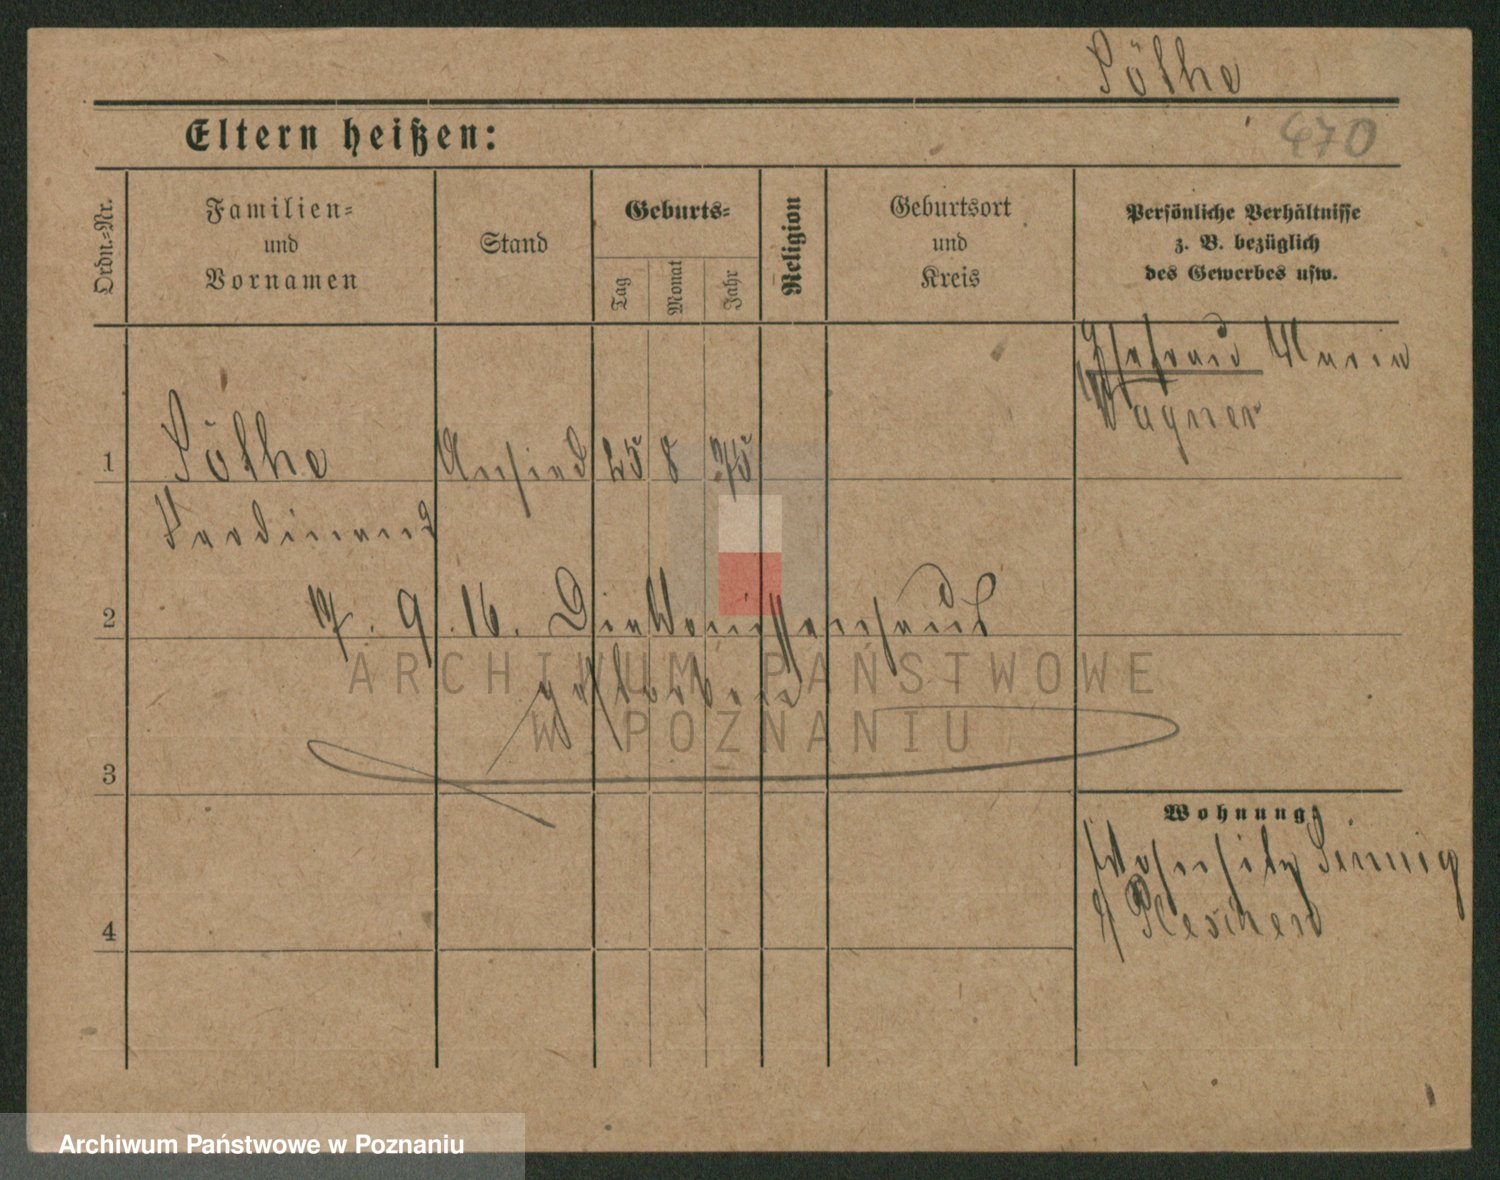 Söthe
Eltern heißen:
470
Ordn.-Nr.
Familien-
und
Vornamen
Stand
Geburts-
Tag
Monat
Jahr
Religion
Geburtsort
und
Kreis
Persönliche Verhältnisse
z. B. bezüglich
des Gewerbes usw.
Ehefrau Maria
Wagner
1
Söthe
Ansied
25
8
75
Ferdinand
2
17. 9. 16. Diakonissenhaus
gestorben
3
Wohnung:
Wohnsitz
Pleschen
4
ARCHIWUM PAŃSTWOWE
W POZNANIU
Archiwum Państwowe w Poznaniu